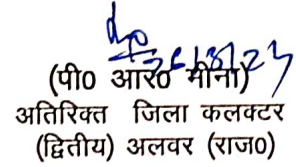 26/3/24
(पी0 आर0 मीना)
अतिरिक्त जिला कलक्टर
(द्वितीय) अलवर (राज0)